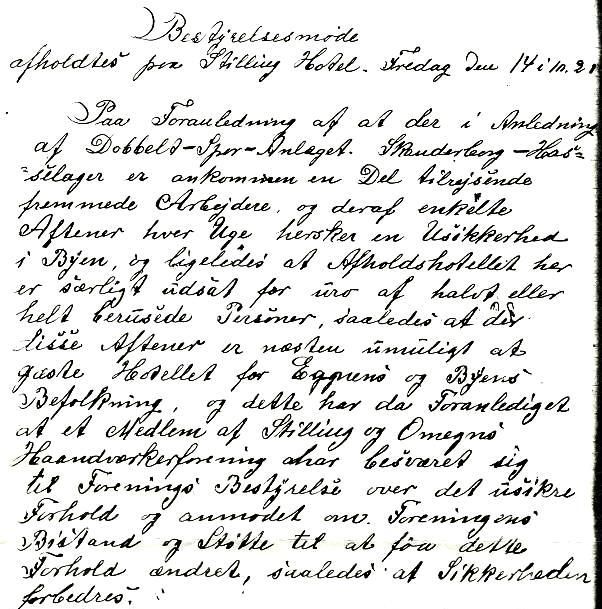 Bestyrelsesmøde
afholdtes paa Stilling Hotel. Fredag den 14 i 10. 21
Paa Foranledning af at der i Anledning
af Dobbelt-Spor-Anlæget. Skanderborg-Has=
=selager er ankommen en Del tilrejsende
fremmede Arbejdere, og deraf enkelte
Aftener hver Uge hersker en Usikkerhed
i Byen, og ligeledes at Afholdshotellet her
er særligt udsat for uro af halvt eller
helt berusede Personer, saaledes at det
disse Aftener er næsten umuligt at
gæste Hotellet for Egnens og Byens
Befolkning, og dette har da Foranlediget
at et Medlem af Stilling og Omegns
Haandværkerforening har besværet sig
til Forenings Bestyrelse over det usikre
Forhold og anmodet om. Foreningens
Bistand og Støtte til at faa dette
Forhold ændret, saaledes at Sikkerheden
forbedres.